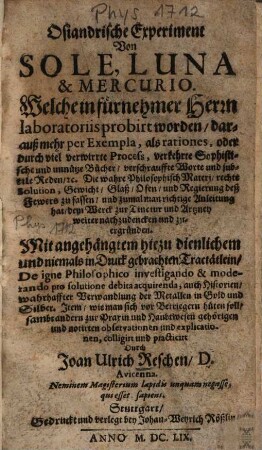 Phys 1712
Osiandrische Experiment
Von
SOLE, LUNA
& MERCURIO.
Welche in fürnehmer Herrn
laboratoriis probirt worden / dar-
auß mehr per Exempla, als rationes, oder
durch viel verwirrte Process, verkehrte Sophisti-
sche und unnütze Bücher / verschrauffte Wort und sub-
tile Reden / ec. Die wahre Philosophisch Materi, rechte
Solution, Gewicht / Glaß / Ofen / und Regierung deß
Fewers zu fassen / und zumal man richtige Anleitung
hat / dem Werck zur Tinctur und Artzney
weiter nachzudencken und zu
ergründen.
Mit angehängtem hiezu dienlichem
und niemals in Druck gebrachten Tractätlein /
De igne Philosophico investigando & mode-
rando pro solutione debita acquirenda, auch Historien /
warhaffter Verwandlung der Metallen in Gold und
Silber. Item / wie man sich vor Betriegern hüten soll /
sambt andern zur Praxin und Handweisen gehörigen
und notirten observationen und explicatio-
nen, colligirt und practicirt
Durch
Joan Ulrich Reschen / D.
Avicenna.
Neminem Magisterium lapidis unquam negasse,
qui esset sapiens.
Stuttgart /
Gedruckt und verlegt bey Johan-Weyrich Rößlin
ANNO M. DC. LIX.